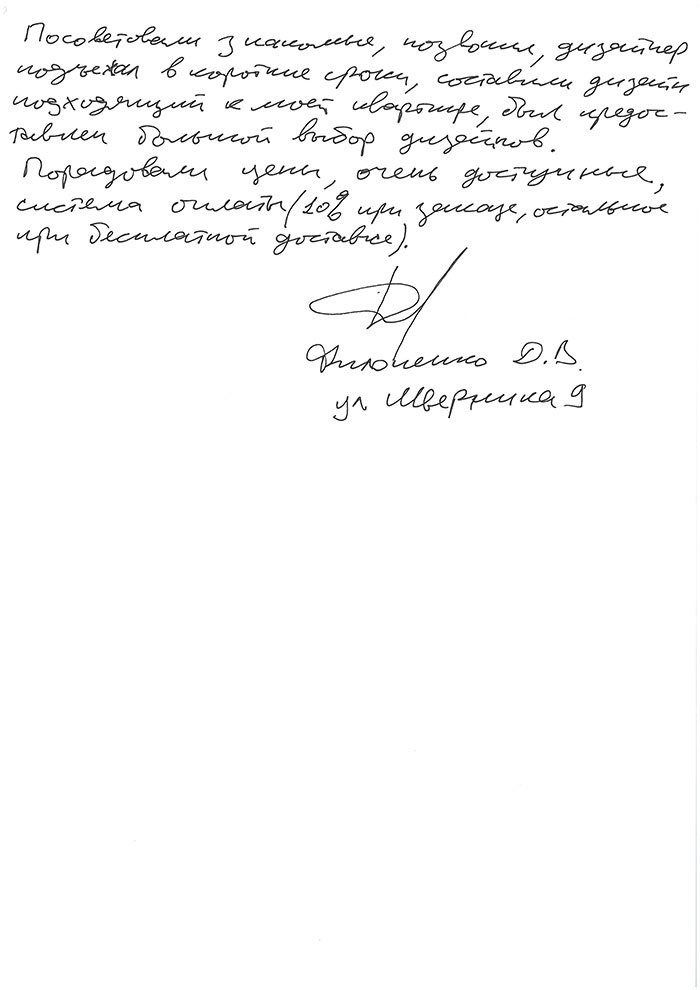 Посоветовали знакомые, позвонил, дизайнер
подъехал в короткие сроки, составили дизайн
подходящий к моей квартире, был предос-
тавлен большой выбор дизайнов.
Порадовали цены, очень доступные,
система оплаты (10% при заказе, остальное
при бесплатной доставке).
Д.В.
ул Шверника 9